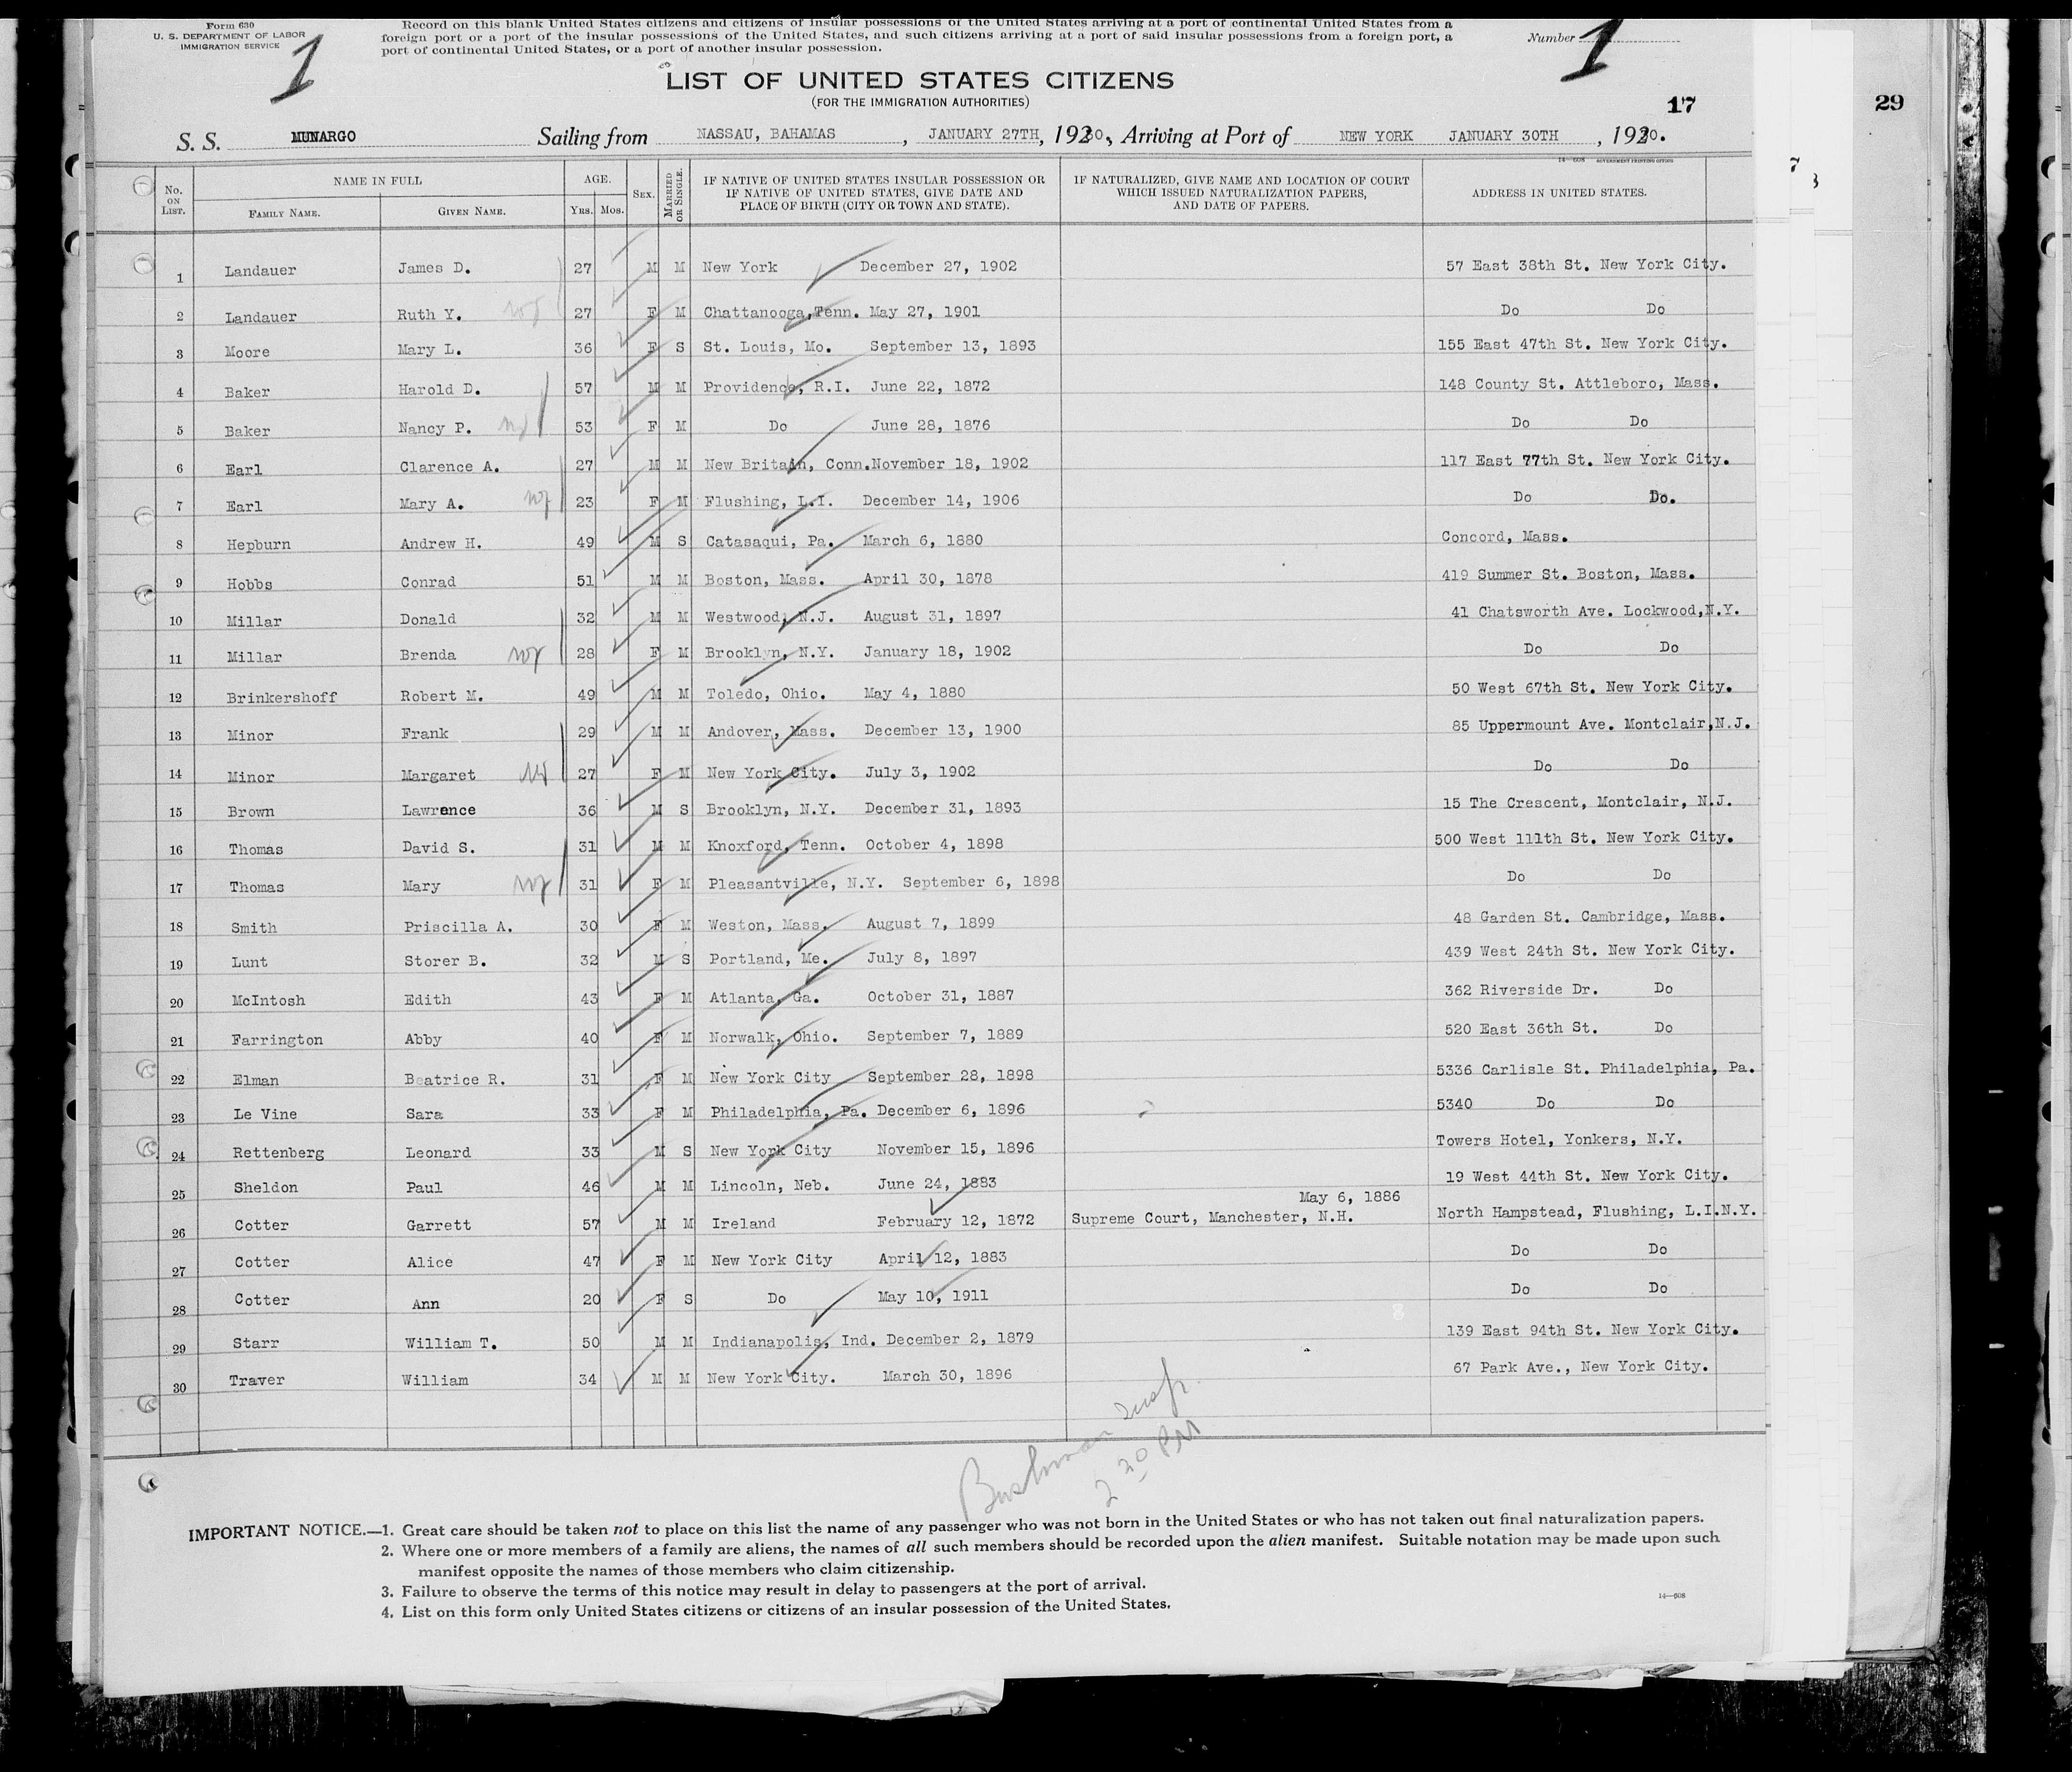 Form 630
U. S. DEPARTMENT OF LABOR
IMMIGRATION SERVICE
1
Record on this blank United States citizens and citizens of insular possessions of the United States arriving at a port of continental United States from a
foreign port or a port of the insular possessions of the United States, and such citizens arriving at a port of said insular possessions from a foreign port, a
port of continental United States, or a port of another insular possession.
Number 1
LIST OF UNITED STATES CITIZENS
(FOR THE IMMIGRATION AUTHORITIES)
17
29
S. S. MUNARGO Sailing from NASSAU, BAHAMAS, JANUARY 27TH, 1930, Arriving at Port of NEW YORK JANUARY 30TH, 1930.
14—608 GOVERNMENT PRINTING OFFICE
No. ON LIST. NAME IN FULL FAMILY NAME. GIVEN NAME. AGE. YRS. MOS. SEX. MARRIED OR SINGLE. IF NATIVE OF UNITED STATES INSULAR POSSESSION OR IF NATIVE OF UNITED STATES, GIVE DATE AND PLACE OF BIRTH (CITY OR TOWN AND STATE). IF NATURALIZED, GIVE NAME AND LOCATION OF COURT WHICH ISSUED NATURALIZATION PAPERS, AND DATE OF PAPERS. ADDRESS IN UNITED STATES.
1 Landauer James D. 27 M M New York December 27, 1902 57 East 38th St. New York City.
2 Landauer Ruth Y. 27 F M Chattanooga,Tenn. May 27, 1901 Do Do
3 Moore Mary L. 36 F S St. Louis, Mo. September 13, 1893 155 East 47th St. New York City.
4 Baker Harold D. 57 M M Providence, R.I. June 22, 1872 148 County St. Attleboro, Mass.
5 Baker Nancy P. 53 F M Do June 28, 1876 Do Do
6 Earl Clarence A. 27 M M New Britain, Conn.November 18, 1902 117 East 77th St. New York City.
7 Earl Mary A. 23 F M Flushing, L.I. December 14, 1906 Do Do.
8 Hepburn Andrew H. 49 M S Catasaqui, Pa. March 6, 1880 Concord, Mass.
9 Hobbs Conrad 51 M M Boston, Mass. April 30, 1878 419 Summer St. Boston, Mass.
10 Millar Donald 32 M M Westwood, N.J. August 31, 1897 41 Chatsworth Ave. Lockwood,N.Y.
11 Millar Brenda 28 F M Brooklyn, N.Y. January 18, 1902 Do Do
12 Brinkershoff Robert M. 49 M M Toledo, Ohio. May 4, 1880 50 West 67th St. New York City.
13 Minor Frank 29 M M Andover, Mass. December 13, 1900 85 Uppermount Ave. Montclair,N.J.
14 Minor Margaret 27 F M New York City. July 3, 1902 Do Do
15 Brown Lawrence 36 M S Brooklyn, N.Y. December 31, 1893 15 The Crescent, Montclair, N.J.
16 Thomas David S. 31 M M Knoxford, Tenn. October 4, 1898 500 West 111th St. New York City.
17 Thomas Mary 31 F M Pleasantville, N.Y. September 6, 1898 Do Do
18 Smith Priscilla A. 30 F M Weston, Mass. August 7, 1899 48 Garden St. Cambridge, Mass.
19 Lunt Storer B. 32 M S Portland, Me. July 8, 1897 439 West 24th St. New York City.
20 McIntosh Edith 43 F M Atlanta, Ga. October 31, 1887 362 Riverside Dr. Do
21 Farrington Abby 40 F M Norwalk, Ohio. September 7, 1889 520 East 36th St. Do
22 Elman Beatrice R. 31 F M New York City September 28, 1898 5336 Carlisle St. Philadelphia, Pa.
23 Le Vine Sara 33 F M Philadelphia, Pa. December 6, 1896 5340 Do Do
24 Rettenberg Leonard 33 M S New York City November 15, 1896 Towers Hotel, Yonkers, N.Y.
25 Sheldon Paul 46 M M Lincoln, Neb. June 24, 1883 19 West 44th St. New York City.
26 Cotter Garrett 57 M M Ireland February 12, 1872 May 6, 1886 Supreme Court, Manchester, N.H. North Hampstead, Flushing, L.I.N.Y.
27 Cotter Alice 47 F M New York City April 12, 1883 Do Do
28 Cotter Ann 20 F S Do May 10, 1911 Do Do
29 Starr William T. 50 M M Indianapolis, Ind. December 2, 1879 139 East 94th St. New York City.
30 Traver William 34 M M New York City. March 30, 1896 67 Park Ave., New York City.
Bushman Insp.
2 30 PM
IMPORTANT NOTICE.—1. Great care should be taken not to place on this list the name of any passenger who was not born in the United States or who has not taken out final naturalization papers.
2. Where one or more members of a family are aliens, the names of all such members should be recorded upon the alien manifest. Suitable notation may be made upon such
manifest opposite the names of those members who claim citizenship.
3. Failure to observe the terms of this notice may result in delay to passengers at the port of arrival.
4. List on this form only United States citizens or citizens of an insular possession of the United States.
14—608